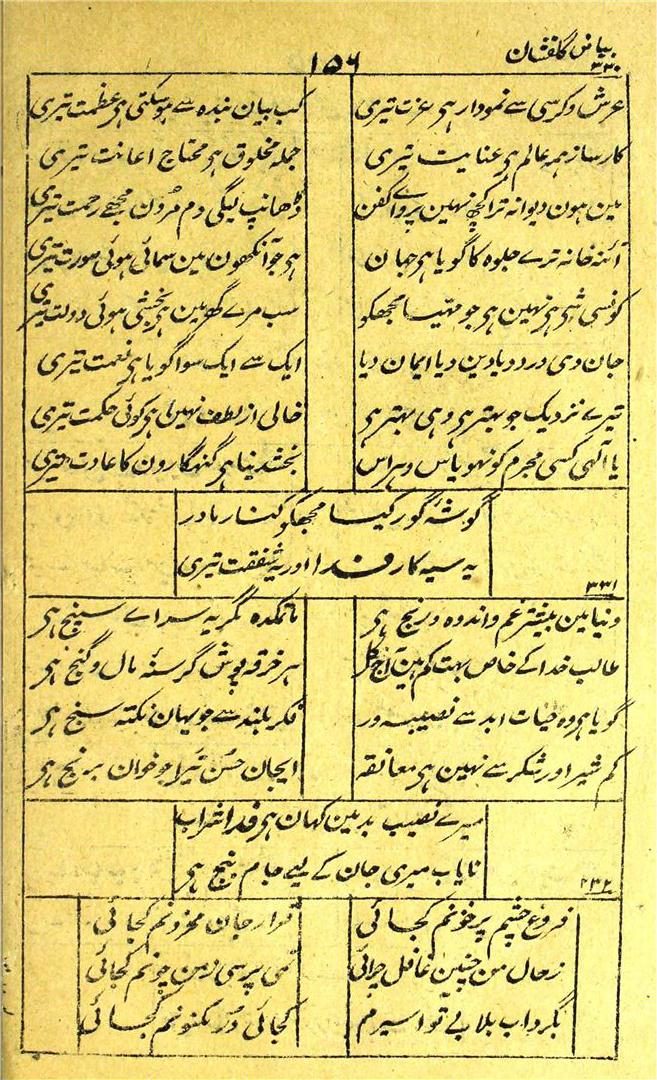 بیاض گلفشان
۱۵۶
۳۳۰
عرش و کرسی سے نمودار ہی عزت تیری
کب بیان بندہ سے ہو سکتی ہی عظمت تیری
کارساز ہمہ عالم ہی عنایت تیری
جملہ مخلوق ہی محتاج اعانت تیری
مین ہون دیوانہ ترا کچھ نہین پرواے کفن
ڈھانپ لیگی دم مردن مجھے رحمت تیری
آئنہ خانہ ترے جلوہ کا گویا ہی جہان
ہی جو آنکھون مین سمائی ہوئی صورت تیری
کونسی شی ہی نہین ہی جو مہیا مجھکو
سب مرے گھر مین ہی بخشی ہوئی دولت تیری
جان دی درد دیا دین دیا ایمان دیا
ایک سے ایک سوا گویا ہی نعمت تیری
تیرے نزدیک جو بہتر ہی وہی بہتر ہی
خالی از لطف نہین ہی کوئی حکمت تیری
یا الٰہی کسی مجرم کو نہو یاس و ہراس
بخشدینا ہی گنہگارون کا عادت تیری
گوشۂ گور کیسا مجھکو کنار مادر
یہ سیہ کار فدا اور یہ شفقت تیری
۳۳۱
دنیا مین بیشتر غم و اندوہ و رنج ہی
ماتمکدہ مگر یہ سراے سپنج ہی
طالب خدا کے خاص بہت کم ہین آج کل
ہر خرقہ پوش گرسنۂ مال و گنج ہی
گویا ہی وہ حیات ابد سے نصیبہ ور
فکر بلند سے جو یہان نکتہ سنج ہی
کم شیر اور شکر سے نہین ہی معانقہ
ایجان حسن تیرا جو خوان برنج ہی
میرے نصیب بد مین کہان ہی فدا شراب
نایاب میری جان کے لیے جام پنج ہی
۲۳۲
فروغ چشم پر خونم کجائی
قرار جان محزونم کجائی
زحال من چنین غافل چرائی
نمی پرسی ز من چونم کجائی
بگرداب بلا بے تو اسیرم
کجائی در مکنونم کجائی